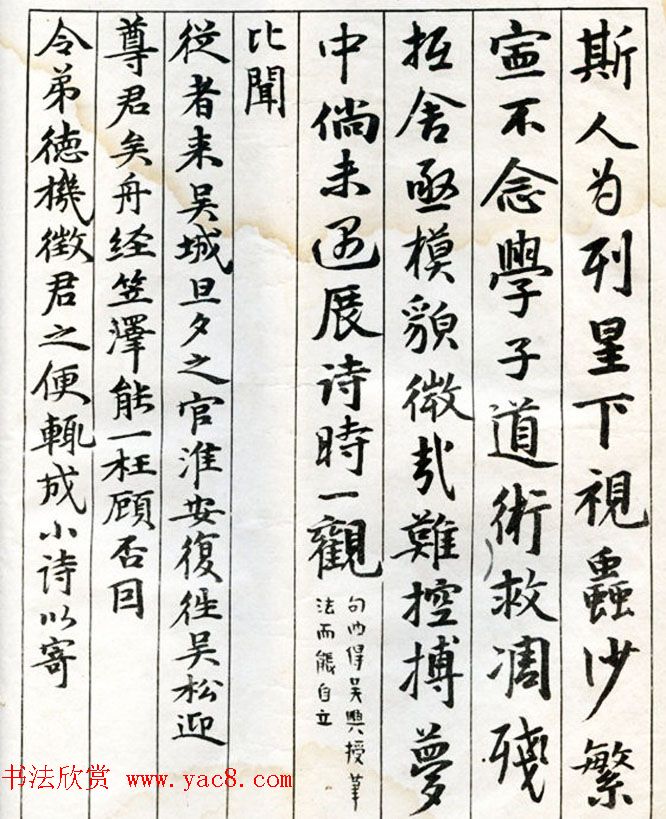 斯人为列星下視蟲沙繁
寍不念學子道術救凋殘
抵舍亟模貌微㢤難控摶夢
中倘未遇展诗時一觀
句内得吴興授筆
法而能自立
比聞
従者来吴城旦夕之官淮安復往吴松迎
尊君矣舟经笠澤能一枉顾否因
令弟德機徵君之便輒成小诗以寄
书法欣赏 www.yac8.com